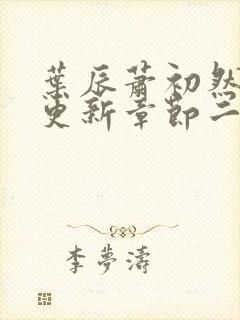 葉辰蕭初然
更新章節二
李夢濤